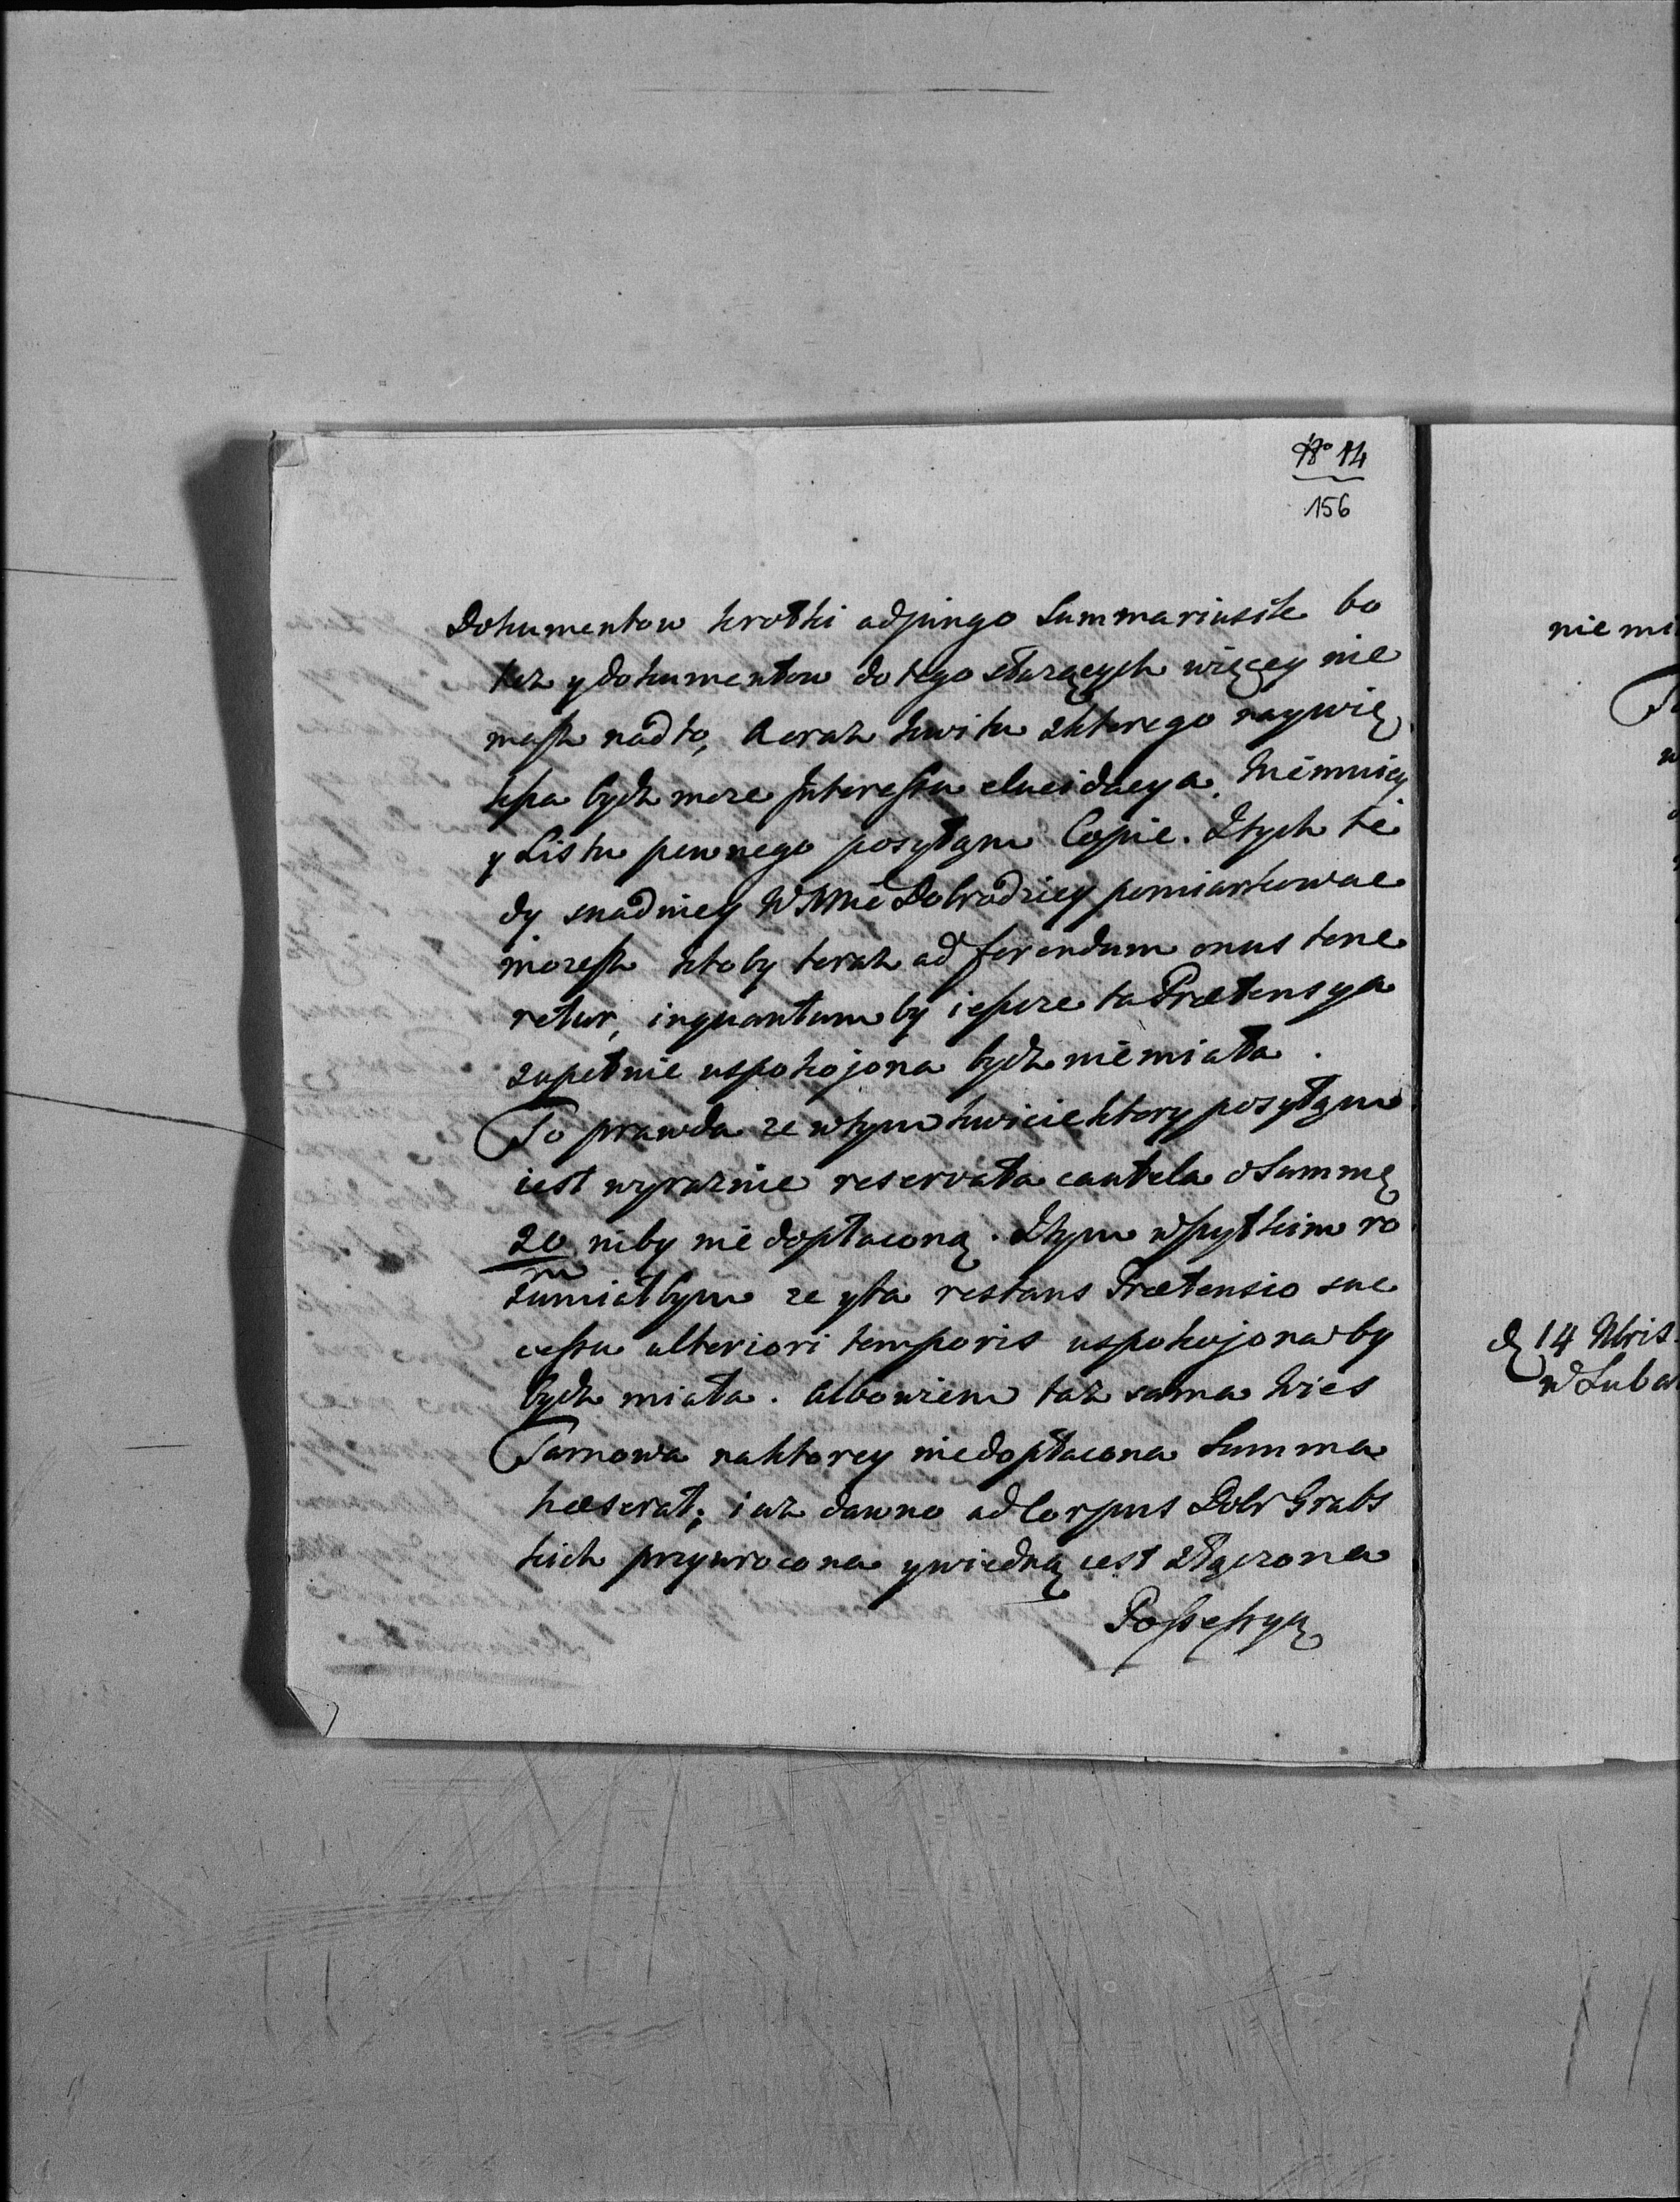 No 14
156
Dokumentow krotki adjungo Summariusik bo
tez y dokumentow do tego słuzących więcey nie
masz nad to, A oraz kwitu zktorego naywię
ksza bydz moze Interessu elucidacya. Niemniey
y Listu pewnego posyłam Copie. Ztych te
dy snadniey WMM Dobrodziey pomiarkowac
mozesz ktoby teraz ad ferendum onus tene
retur, inquantum by ieszcze ta Prætensya
zupełnie uspokojona bydz niemiała.
To prawda ze wtym kwicie ktory posyłam
iest wyraznie reservata cautela o Summę
20 niby niedopłaconą. Ztym wszytkim ro
m
zumiałbym ze y ta restans Prætensio suc
cessu ulteriori temporis uspokojona by
bydz miała. Albowiem taz sama Wies
Tarnowa naktorey niedopłacona Summa
hæserat; iuz dawno ad Corpus Dobr Grabs
kich przywrocona y wiedną iest złączona
Possessyą
nie mi
d 14 Xbris
w Lub